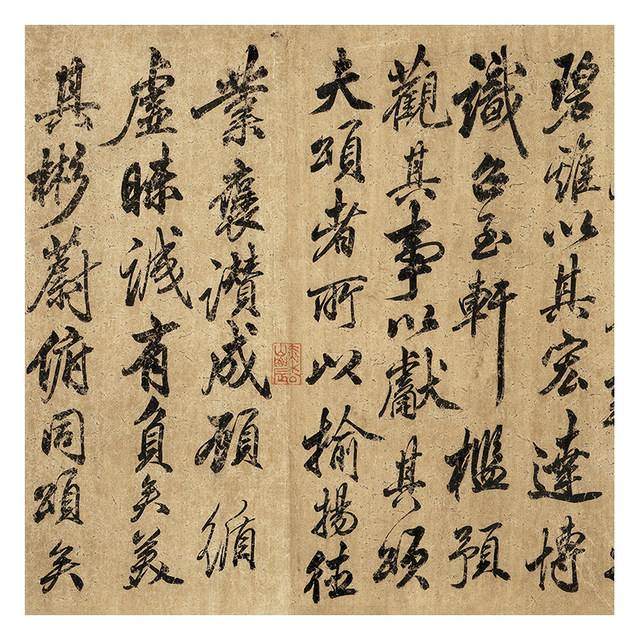 碧雞以其宏達博
識召至軒檻預
觀其事以獻其頌
夫頌者所以揄揚德
業褒讚成顧循
虛昧誠有負矣美
其彬蔚俯同頌矣